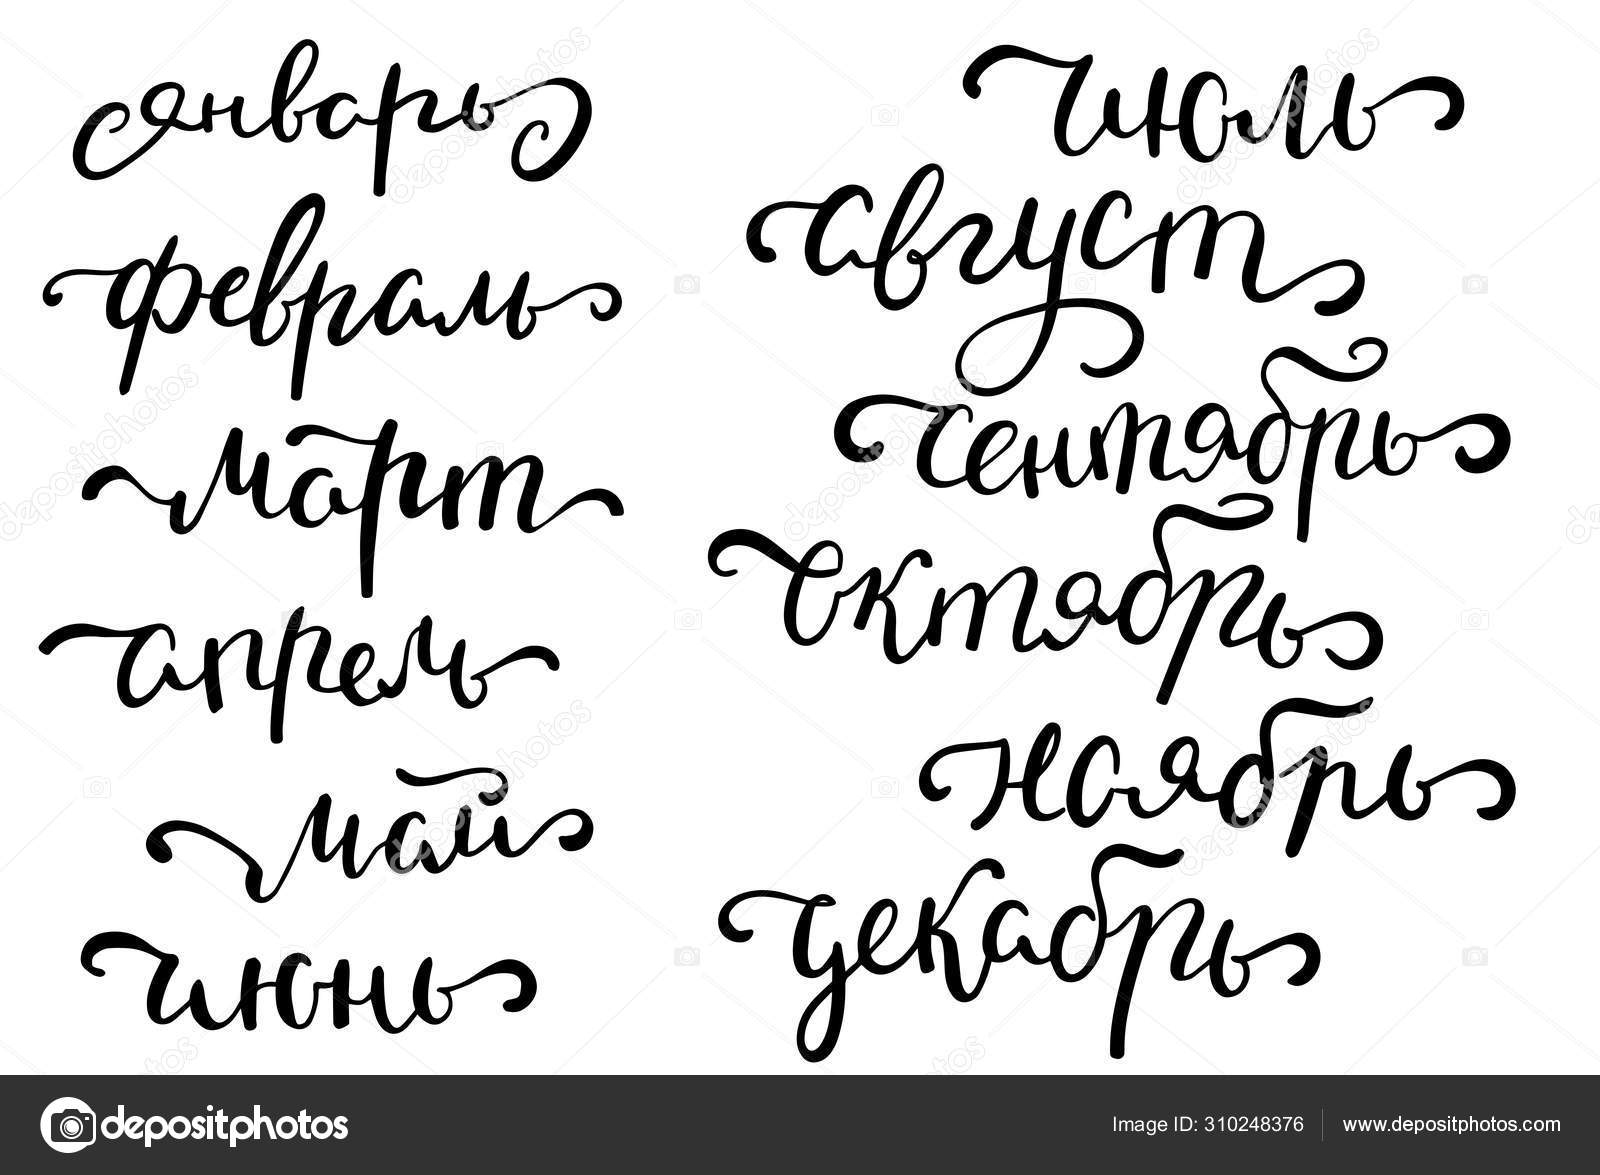 январь
февраль
март
апрель
май
июнь
июль
август
сентябрь
октябрь
ноябрь
декабрь
depositphotos
Image ID: 310248376 www.depositphotos.com